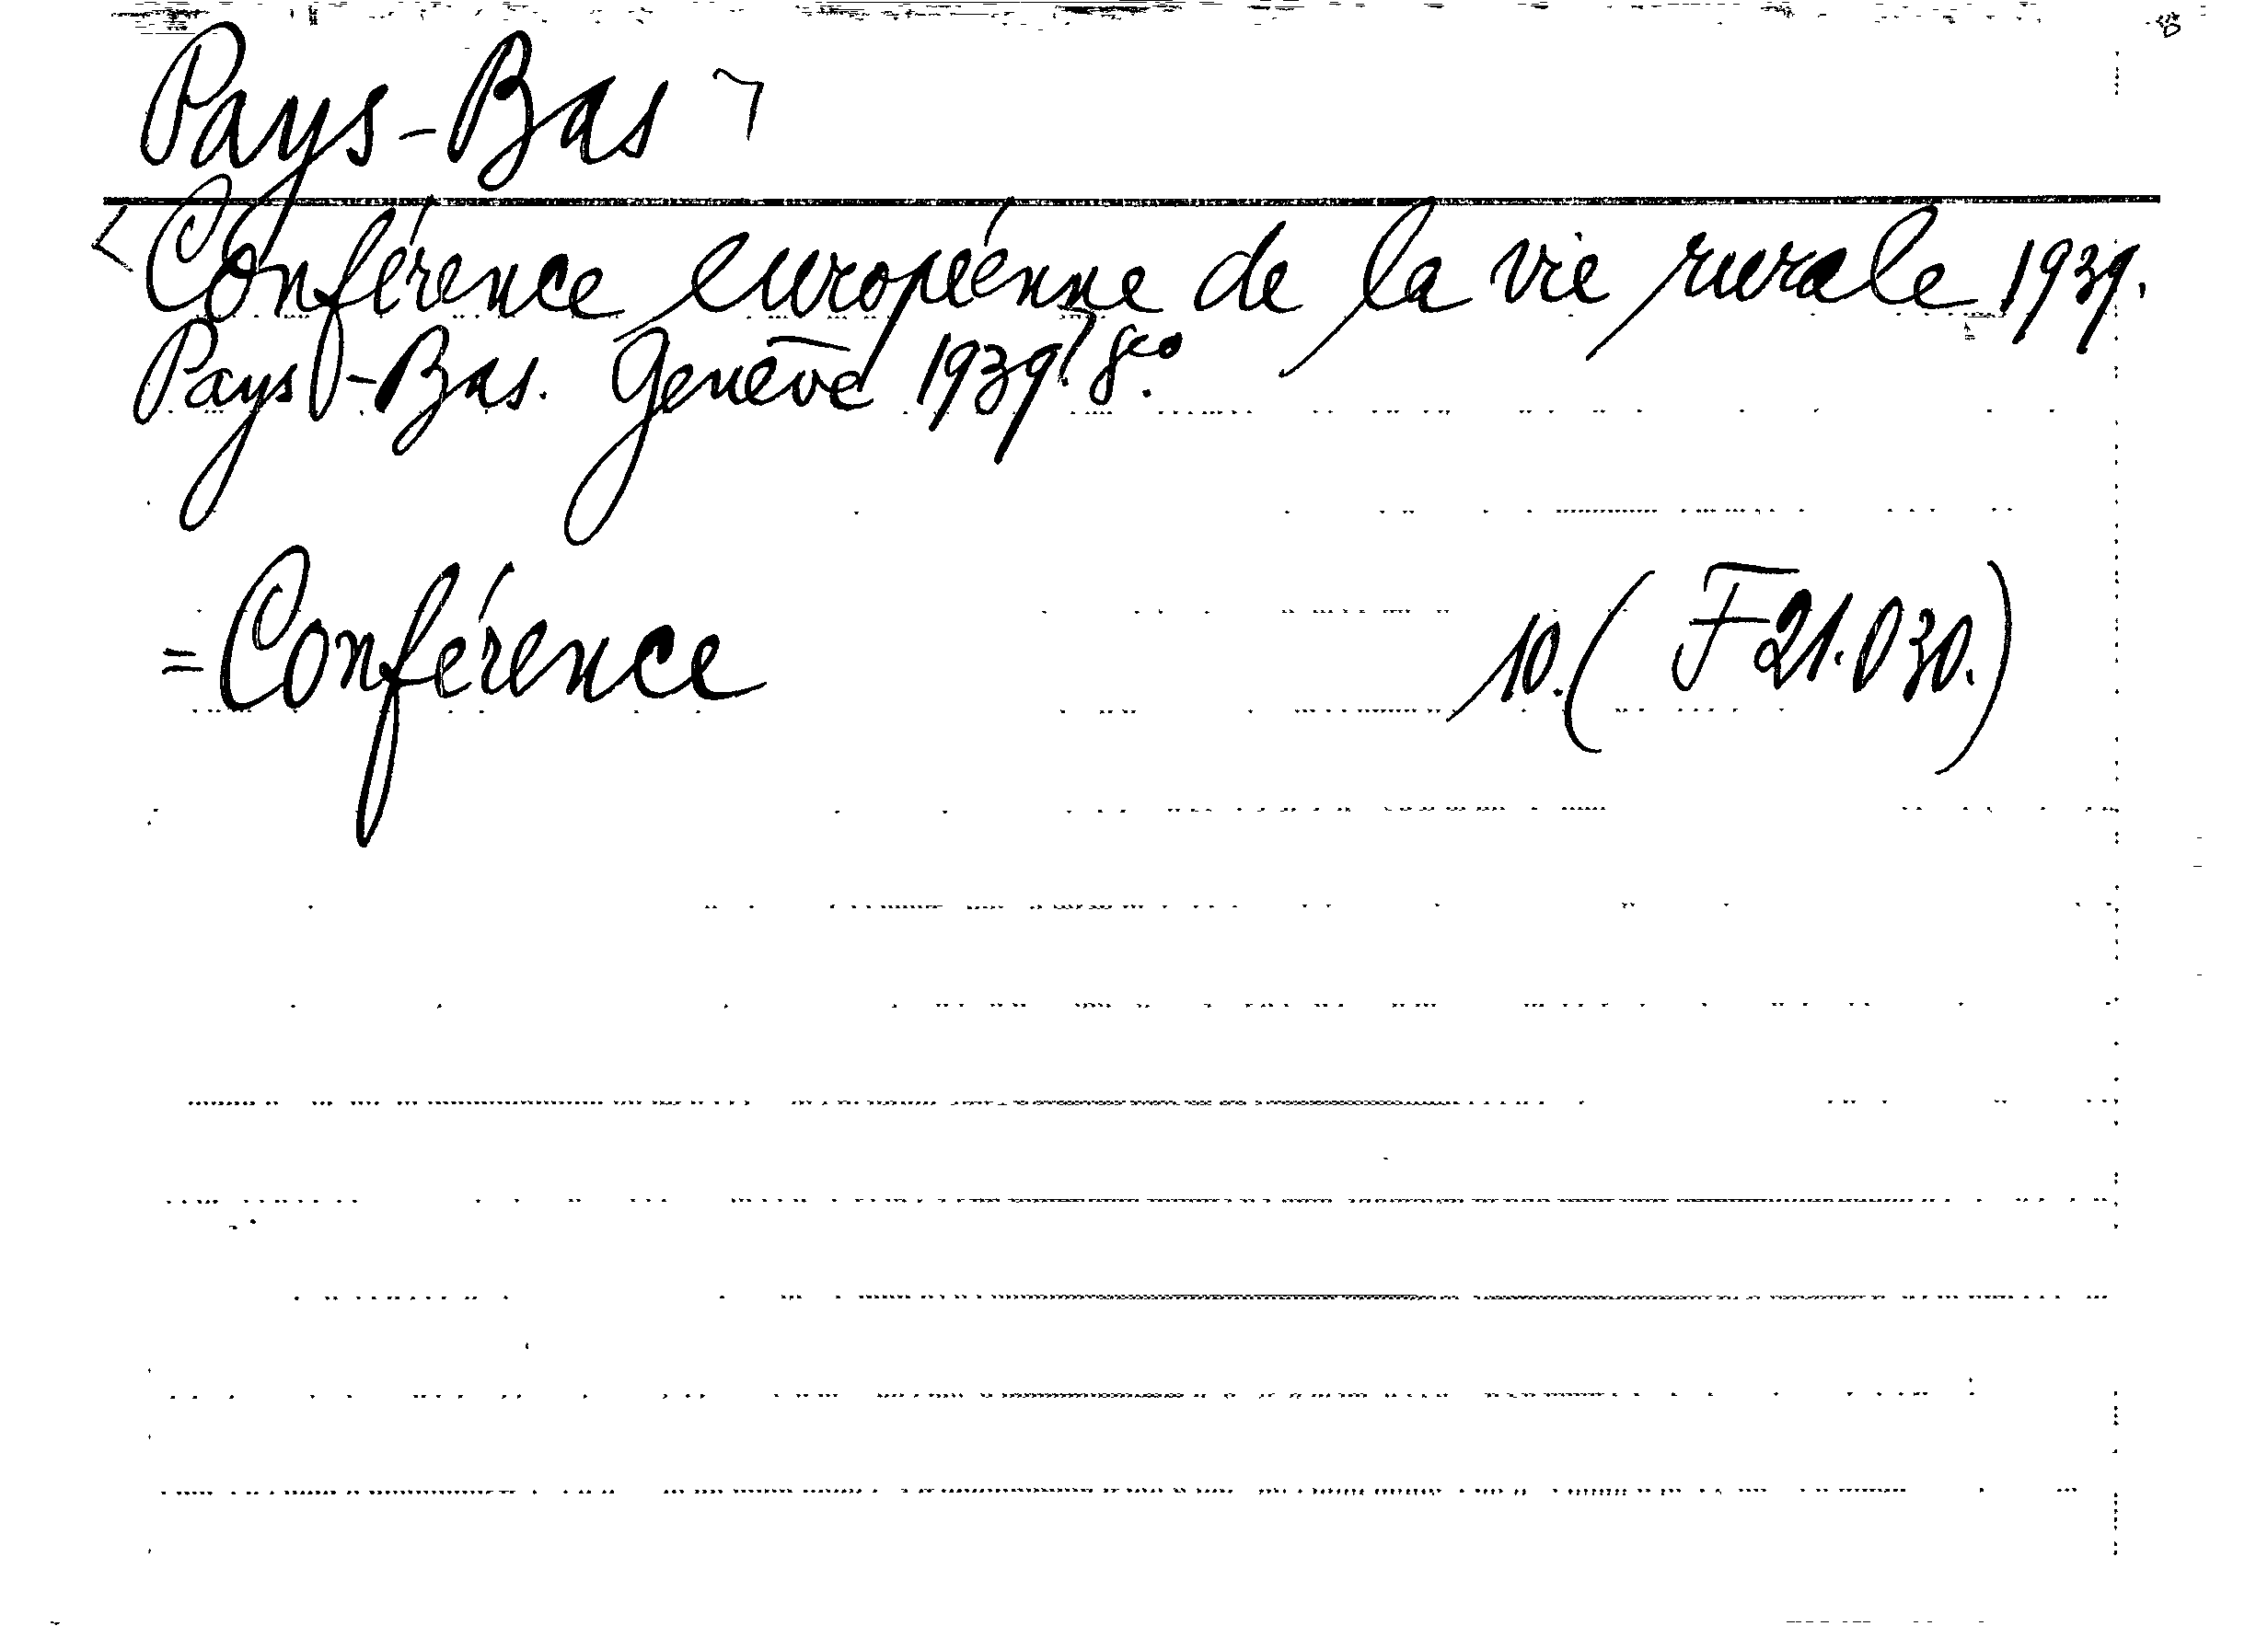 Pays-Bas ¬
<Conférence européenne de la vie rurale 1939.
Pays-Bas. Genève 1939. 8co.
=Conférence 10.( F21.030.)